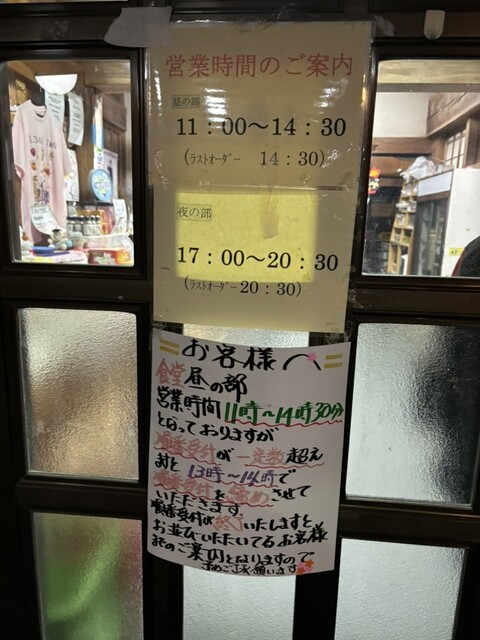 営業時間のご案内
昼の部
11：00～14：30
(ﾗｽﾄｵｰﾀﾞｰ 14：30)
夜の部
17：00～20：30
(ﾗｽﾄｵｰﾀﾞｰ 20：30)
お客様へ
食堂昼の部
営業時間11時～14時30分
となっておりますが
順番受付が一定数超え
ますと13時～14時で
順番受付を締めさせて
いただきます
順番受付が終了いたしますと
お並びいただいてるお客様
までのご案内となりますので
予めご了承願います